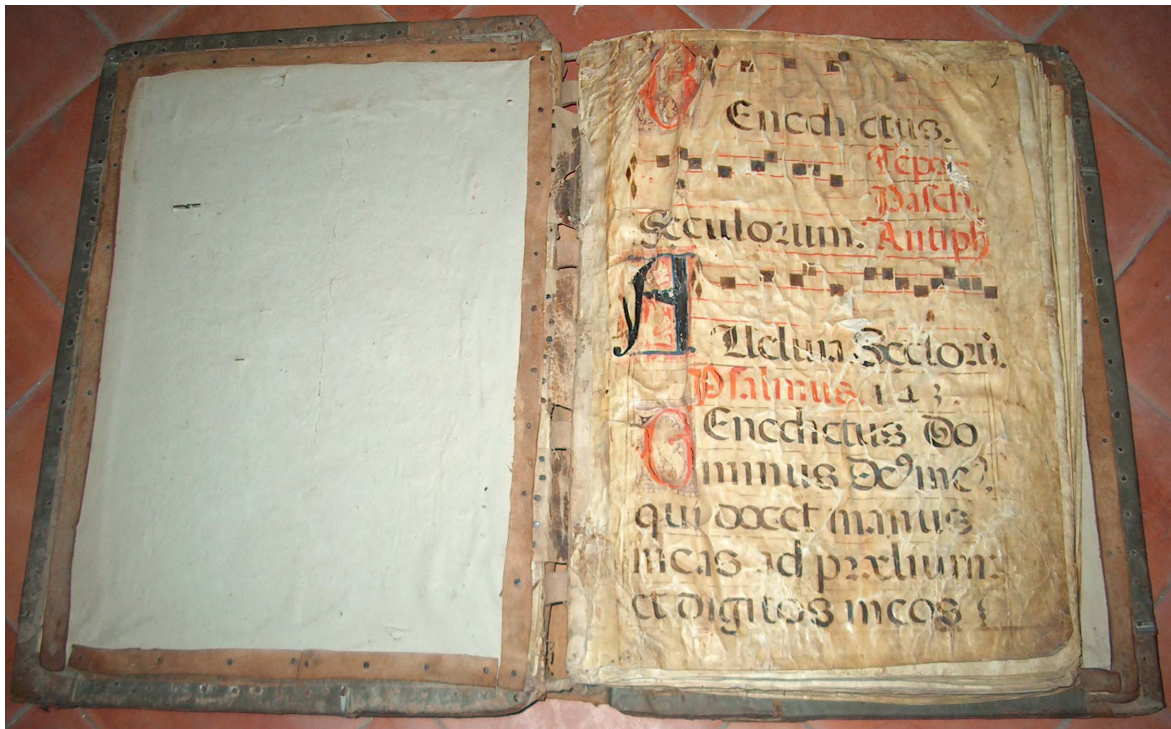 BEnedictus.
Tẽpor
Pasch.
Sęculorum. Antiph
ALleluia. Sęculorũ.
Psalmus 143.
BEnedictus Do
minus De9 me9
qui docet manus
meas ad prælium:
et digitos meos